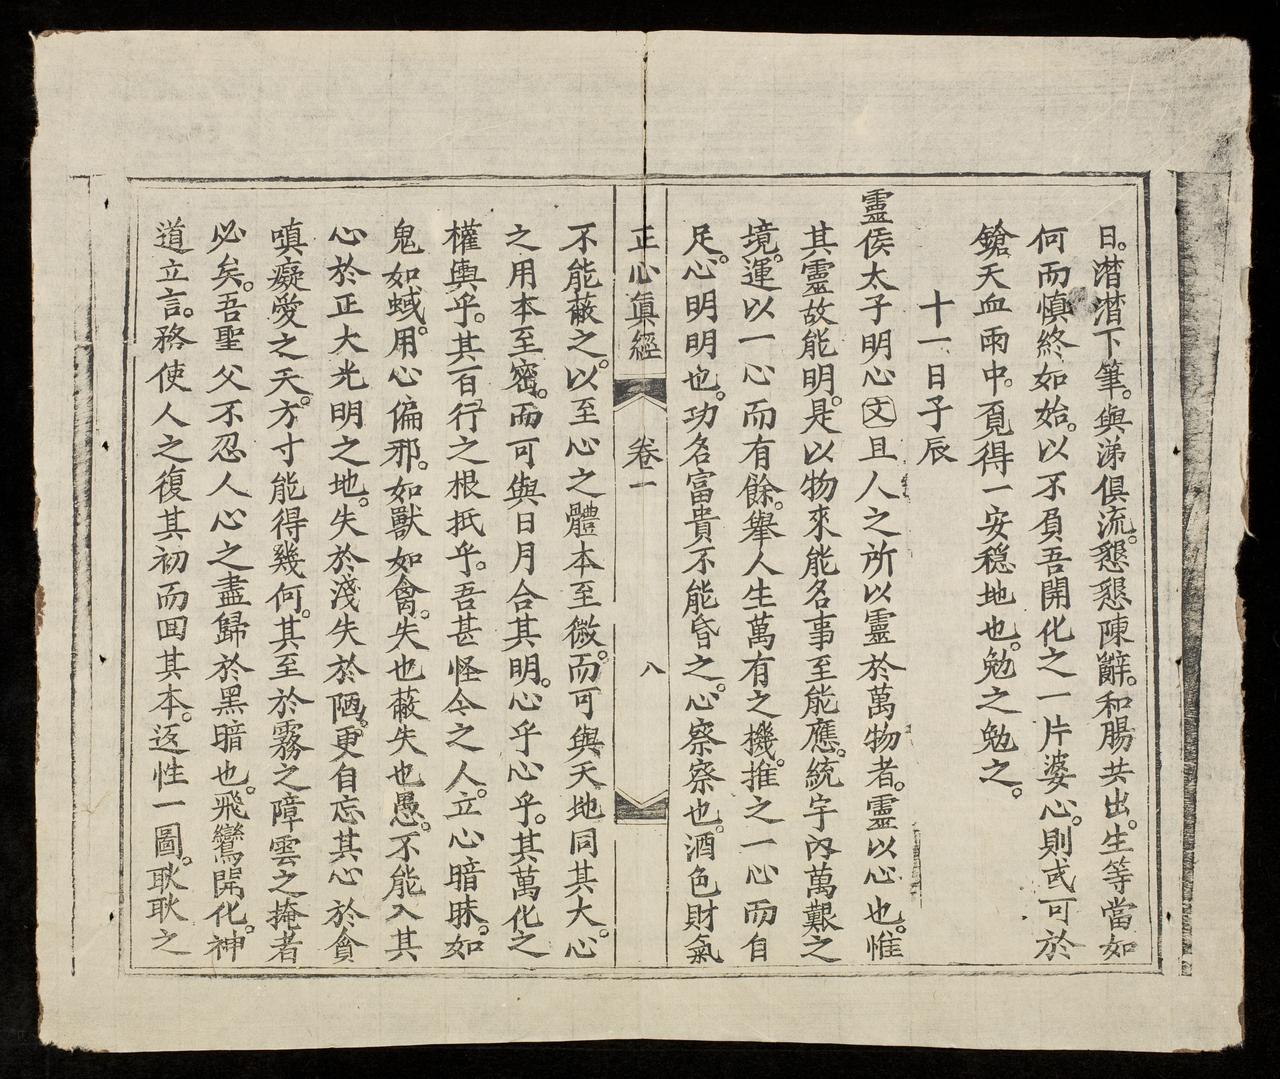 日。潸潸下筆。與涕俱流。懇懇陳辭。和腸共出。生等當如
何而慎終如始。以不負吾開化之一片婆心。則或可於
鎗天血雨中。覓得一安穏地也。勉之勉之。
十一日子辰
靈侯太子明心文且人之所以靈於萬物者。靈以心也。惟
其靈故能明。是以物來能名事至能應。統宇內萬艱之
境。運以一心而有餘。舉人生萬有之機。推之一心而自
足。心明明也。功名富貴不能昏之。心察察也。酒色財氣
正心真經 卷一 八
不能蔽之。以至心之體本至微。而可與天地同其大。心
之用本至密。而可與日月合其明。心乎心乎。其萬化之
權輿乎。其百行之根抵乎。吾甚怪今之人。立心暗昧。如
鬼如蜮。用心偏邪。如獸如禽。失也蔽失也愚。不能入其
心於正大光明之地。失於淺失於陋。更自忘其心於貪
嗔癡愛之天。方寸能得幾何。其至於霧之障雲之掩者
必矣。吾聖父不忍人心之盡歸於黑暗也。飛鸞開化。神
道立言。務使人之復其初而囬其本。返性一圖。耿耿之